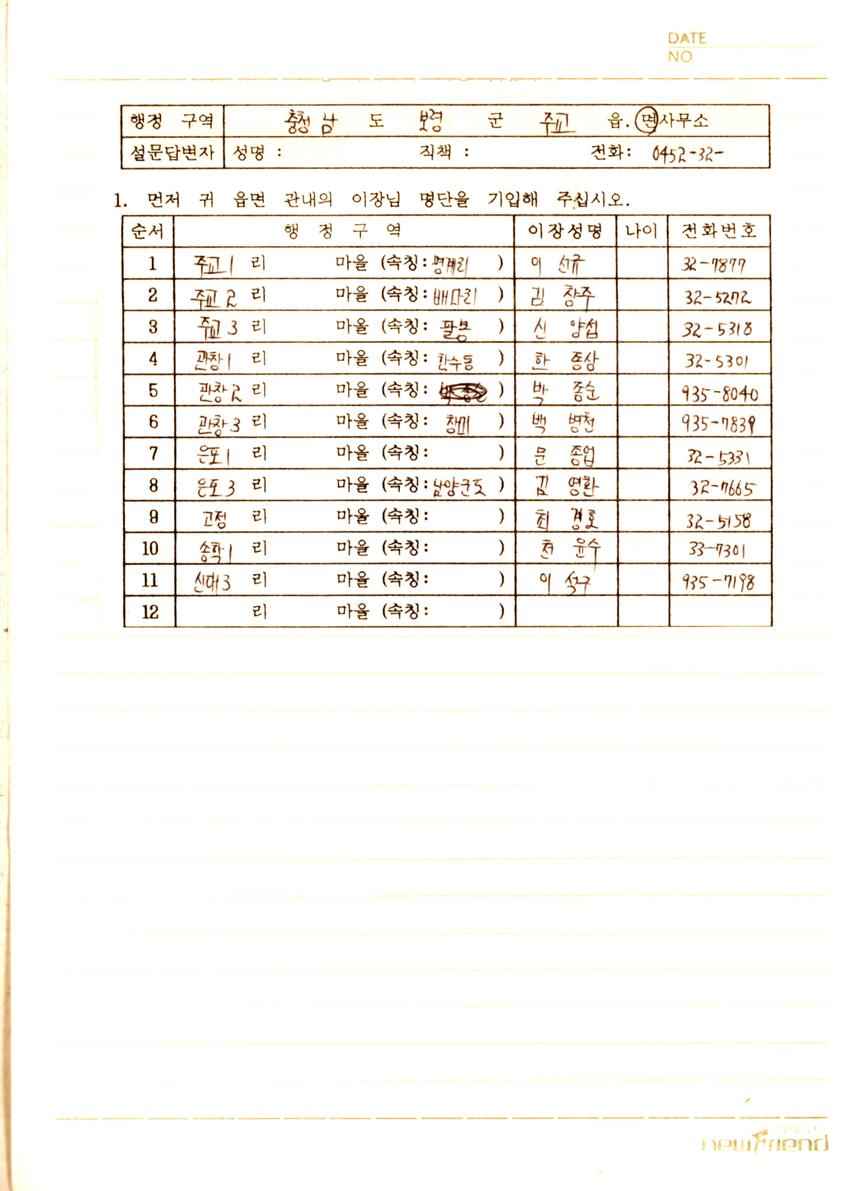 DATE
NO.
행정 구역 충청남 도 보령 군 주교 읍.면사무소
설문답변자 성명 : 직책 : 전화: 0452-32-
1. 먼저 귀 읍면 관내의 이장님 명단을 기입해 주십시오.
순서 행 정 구 역 이장성명 나이 전화번호
1 주교 1 리 마을 (속칭: ) 이 선규 32-7877
2 주교 2 리 마을 (속칭: 배다리 ) 김 창주 32-5272
3 주교 3 리 마을 (속칭: 팔봉 ) 신 양섭 32-5318
4 관창 1 리 마을 (속칭: 한수동 ) 한 종상 32-5301
5 관창 2 리 마을 (속칭: ) 박 종순 935-8040
6 관창 3 리 마을 (속칭: 창미 ) 백 병천 935-7839
7 은포 1 리 마을 (속칭: ) 문 종업 32-5331
8 은포 3 리 마을 (속칭: ) 김 영환 32-7665
9 고정 리 마을 (속칭: ) 최 경호 32-5158
10 송학 1 리 마을 (속칭: ) 천 윤수 33-7301
11 신대 3 리 마을 (속칭: ) 이 석구 935-7198
12 리 마을 (속칭: )
newFriend